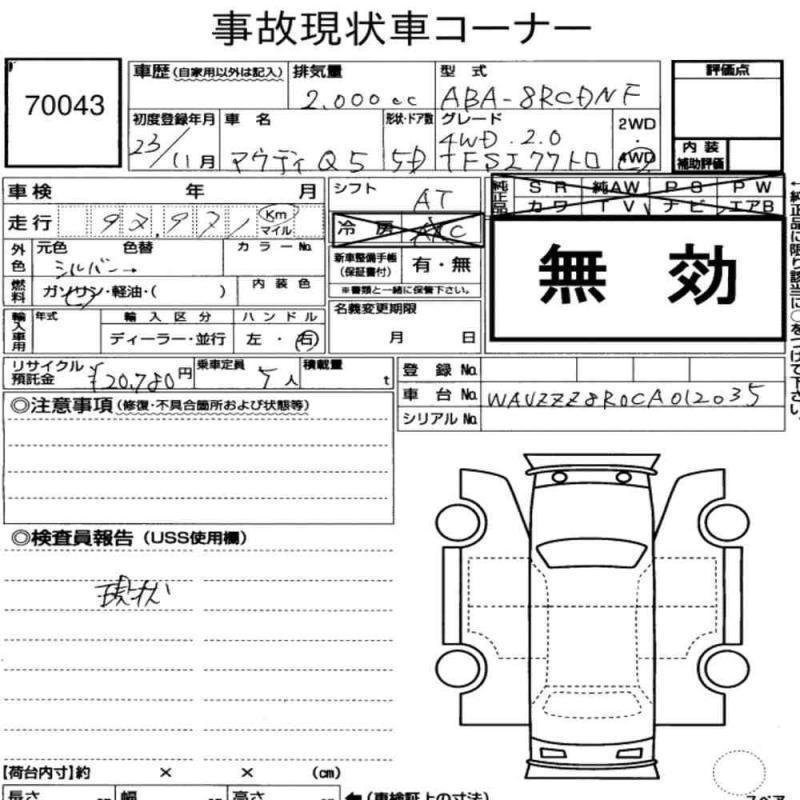 事故現状車コーナー
70043
車歴(自家用以外は記入) 排気量 2.000cc 型式 ABA-8RCDNF
評価点
初度登録年月 23/11月 車名 アウディ Q5 形状・ドア数 5D グレード 4WD 2.0 TFSIクワトロ 2WD・4WD
内装補助評価
車検 年 月 シフト AT
純正品 SR 純AW PS PW
カワ TV ナビ エアB
走行 93,937 Km マイル 冷房 A/C
外色 元色 色替 カラーNo. シルバー
新車整備手帳(保証書付) 有・無
※書類と一緒に保管下さい。
無効
燃料 ガソリン・軽油・( ) 内装色
輸入車用 年式 輸入区分 ハンドル
ディーラー・並行 左・右
名義変更期限
月 日
←純正品に限り該当に○をつけて下さい。
リサイクル預託金 ¥20,780円 乗車定員 5人 積載量 t
登録No.
車台No. WAUZZZ8R0CA012035
シリアルNo.
◎注意事項(修復・不具合箇所および状態等)
◎検査員報告(USS使用欄)
現状
【荷台内寸】約 × × (cm)
長さ 幅 高さ ←(車検証上の寸法)
スペア